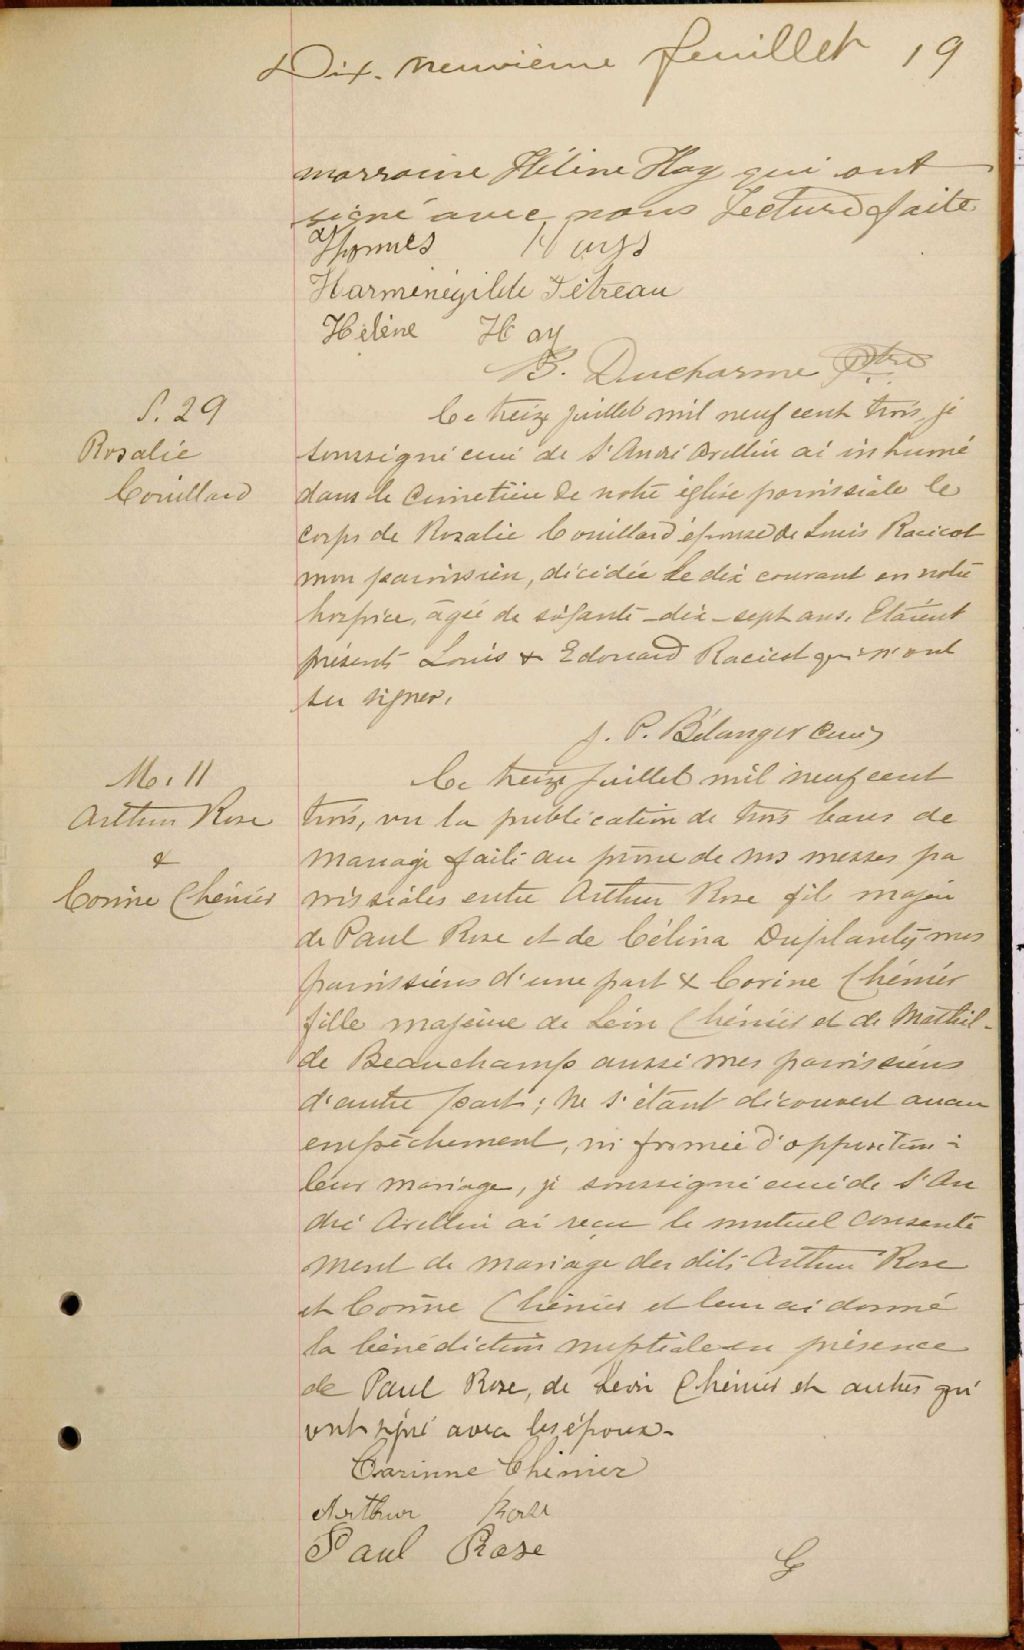 Dix-neuvième feuillet 19
marraine Hélène Hay qui ont
signé avec nous Lecture faite
Thomas Hays
Harménégilde Tétreau
Hélène Hay
B. Ducharme Ptre
S. 29
Rosalie
Couillard
Ce treize juillet mil neuf cent trois, je
soussigné curé de St André Avellin ai inhumé
dans le cimetière de notre église paroissiale le
corps de Rosalie Couillard épouse de Louis Racicot
mon paroissien, décédée le dix courant en notre
hospice, âgée de soixante-dix-sept ans. Etaient
présents Louis & Edouard Racicot qui n'ont
su signer.
J. P. Bélanger Curé
M. 11
Arthur Rose
&
Corine Chénier
Ce treize juillet mil neuf cent
trois, vu la publication de trois bans de
mariage faite au prône de nos messes pa
roissiales entre Arthur Rose fils majeur
de Paul Rose et de Célina Duplantis mes
paroissiens d'une part & Corine Chénier
fille majeure de Léon Chénier et de Mathil-
de Beauchamp aussi mes paroissiens
d'autre part; ne s'étant découvert aucun
empêchement, ni formée d'opposition à
leur mariage, je soussigné curé de St An
dré Avellin ai reçu le mutuel consente
ment de mariage des dits Arthur Rose
et Corine Chénier et leur ai donné
la bénédiction nuptiale en présence
de Paul Rose, de Léon Chénier et autres qui
ont signé avec les époux.
Corinne Chénier
Arthur Rose
Paul Rose